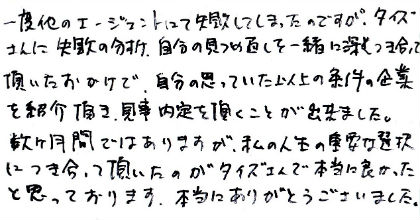 一度他のエージェントにて失敗してしまったのですが、タイズ
さんに失敗の分析、自分の見つめ直しを一緒に深くつき合って
頂いたおかげで、自分の思っていた以上の条件の企業
を紹介頂き、見事内定を頂くことが出来ました。
数ヶ月間ではありますが、私の人生の重要な選択
につき合って頂いたのがタイズさんで本当に良かった
と思っております。本当にありがとうございました。